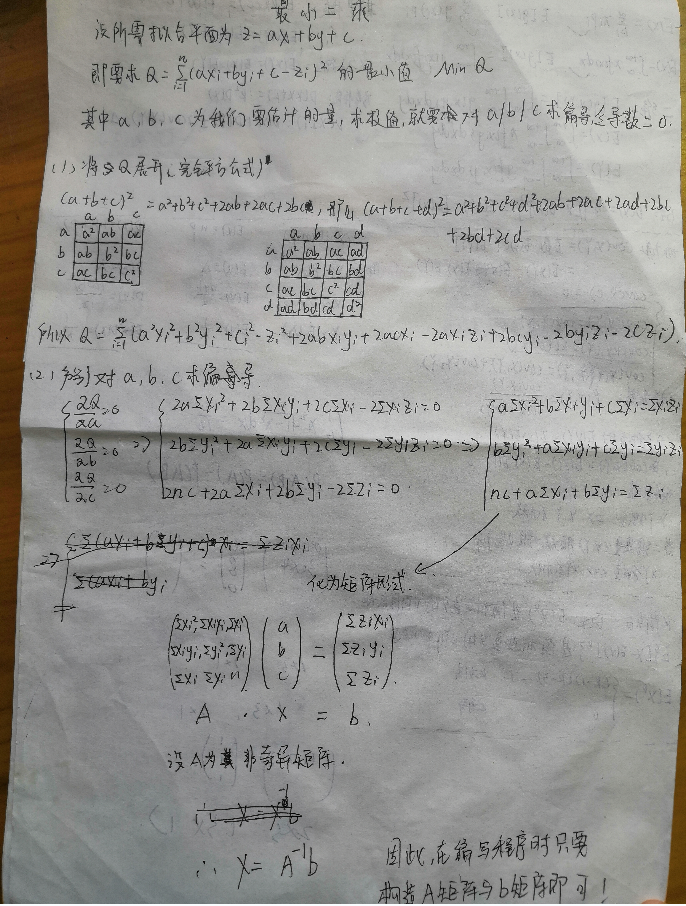 最小二乘
设所需拟合平面为 z=ax+by+c.
即要求 Q=Σ_{i=1}^{n}(axi+byi+c-zi)² 的最小值 Min Q
其中 a, b, c 为我们要估计的量, 求极值, 就要对 a/b/c 求偏导 导数=0.
(1) 将 Q展开(完全平方公式)
(a+b+c)² = a²+b²+c²+2ab+2ac+2bc, (a+b+c+d)²=a²+b²+c²+d²+2ab+2ac+2ad+2bc
+2bd+2cd
a b c
a a² ab ac
b ab b² bc
c ac bc c²
a b c d
a a² ab ac ad
b ab b² bc bd
c ac bc c² cd
d ad bd cd d²
所以 Q = Σ_{i=1}^{n}(a²xi²+b²yi²+ci²-zi²+2abxiyi+2acxi-2axizi+2bcyi-2byizi-2czi).
(2) 分别对 a, b, c 求偏导.
∂Q/∂a=0 2aΣxi²+2bΣxiyi+2cΣxi-2Σxizi=0 aΣxi²+bΣxiyi+cΣxi=Σxizi
∂Q/∂b=0 => 2bΣyi²+2aΣxiyi+2cΣyi-2Σyizi=0 => bΣyi²+aΣxiyi+cΣyi=Σyizi
∂Q/∂c=0 2nc+2aΣxi+2bΣyi-2Σzi=0 nc+aΣxi+bΣyi=Σzi
Σ(axi+bΣyi+c)xi=Σzixi
=> Σ(axi+byi
化为矩阵形式.
(Σxi², Σxiyi, Σxi) (a) (Σzixi)
(Σxiyi, Σyi², Σyi) (b) = (Σziyi)
(Σxi Σyi n) (c) (Σzi)
A · X = b.
设A为 非奇异矩阵.
∴ X = A⁻¹b
因此, 在编写程序时只需
构造A矩阵与b矩阵即可!